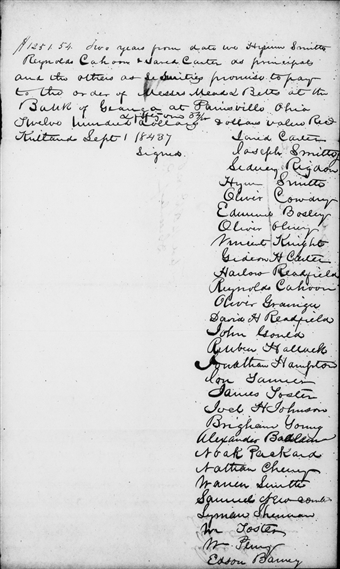 $1251.54 Two years from date we Hyrum Smith
Reynolds Cahoon & David Carter as principals
and the others as Securities promise to pay
to the order of Messrs Mead & Betts at the
Bank of Geauga at Painsville Ohio
Twelve hundred & fifty one 54/100 dollars value Recd
Kirtland Sept 1 1837
Signed
David Carter
Joseph Smith
Sidney Rigdon
Hyrum Smith
Oliver Cowdry
Edmund Bosley
Oliver Olney
Vincent Knight
Gideon H Carter
Harlow Readfield
Reynolds Cahoon
Oliver Granger
David H Readfield
John Gould
Reuben Hallack
Jonathan Hampton
Jon
James Foster
Joel H Johnson
Brigham Young
Alexander Badlam
Noah Packard
Nathan Cheney
Warren Smith
Samuel Newcomb
Lyman Sherman
Wm Foster
Wm Perry
Edson Barney